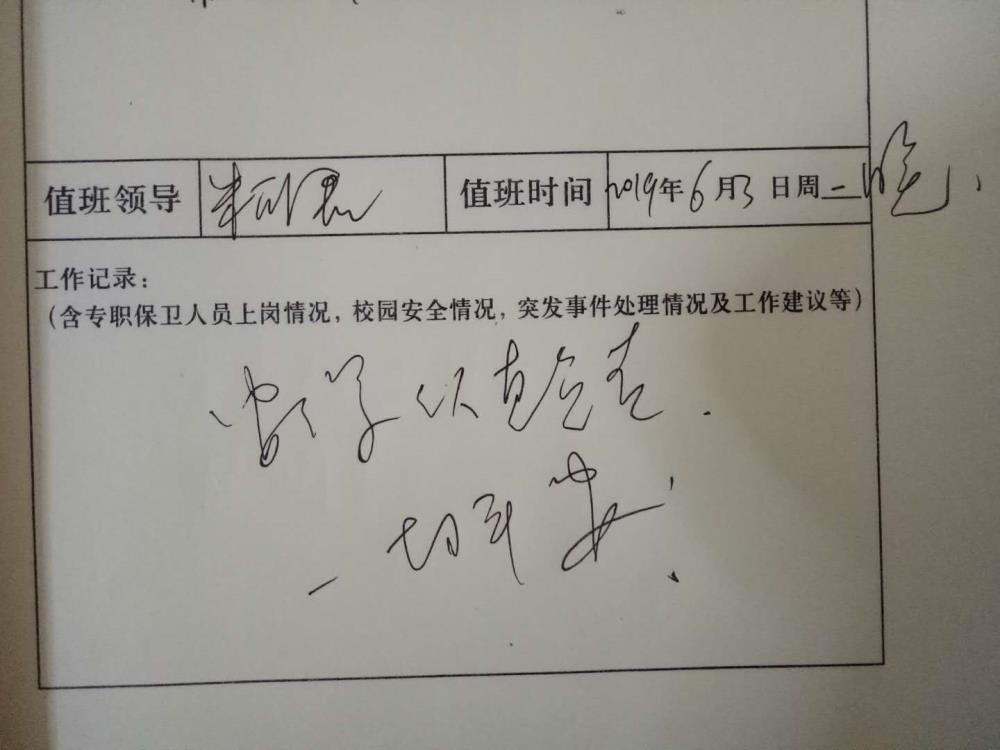 值班领导 值班时间 2019年6月3日周二晚.
工作记录：
（含专职保卫人员上岗情况，校园安全情况，突发事件处理情况及工作建议等）
一切平安.